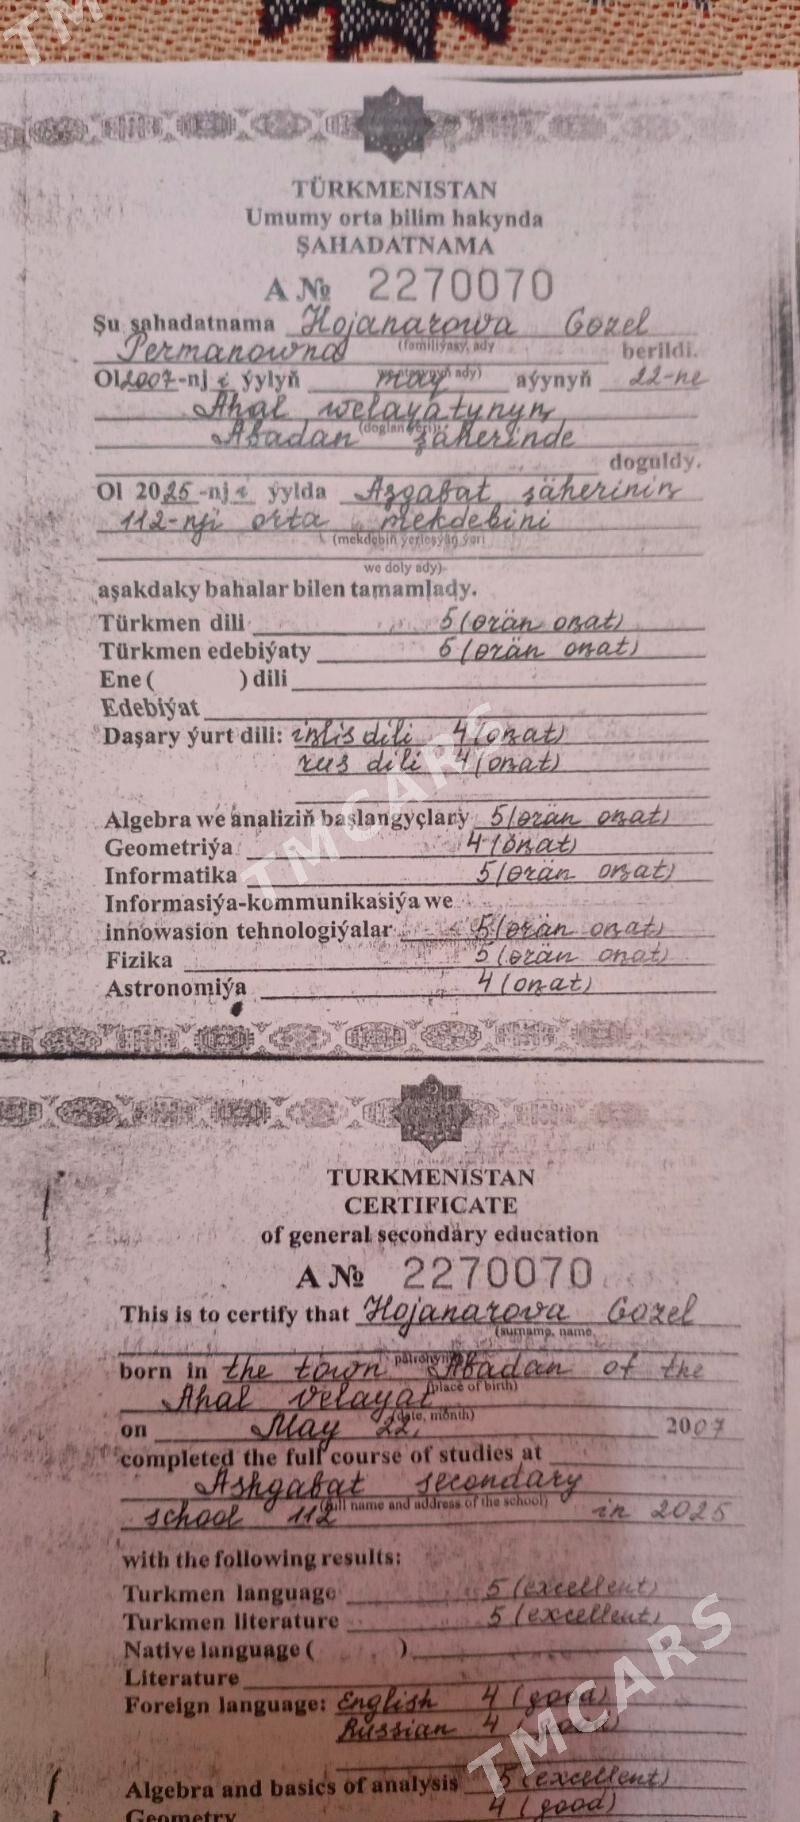 TÜRKMENISTAN
Umumy orta bilim hakynda
ŞAHADATNAMA
A № 2270070
Şu şahadatnama Hojanarowa Gozel
(familiýasy, ady
Permanowna berildi.
Ol 2007-nj i ýylyň may aýynyň 22-ne
Ahal welaýatynyň
Abadan şäherinde
doguldy.
Ol 2025-nji ýylda Aşgabat şäheriniň
112-nji orta mekdebini
(mekdebiň ýerleşýän ýeri
we doly ady)
aşakdaky bahalar bilen tamamlady.
Türkmen dili 5 (örän oňat)
Türkmen edebiýaty 5 (örän oňat)
Ene ( ) dili
Edebiýat
Daşary ýurt dili: iňlis dili 4 (oňat)
rus dili 4 (oňat)
Algebra we analiziň başlangyçlary 5 (örän oňat)
Geometriýa 4 (oňat)
Informatika 5 (örän oňat)
Informasiýa-kommunikasiýa we
innowasion tehnologiýalar 5 (örän oňat)
Fizika 5 (örän oňat)
Astronomiýa 4 (oňat)
TURKMENISTAN
CERTIFICATE
of general secondary education
A № 2270070
This is to certify that Hojanarova Gozel
(surname, name,
patronymic)
born in the town Abadan of the
Ahal velayat
(place of birth)
on May 22, 2007
(date, month)
completed the full course of studies at
Ashgabat secondary
(full name and address of the school)
school 112 in 2025
with the following results:
Turkmen language 5 (excellent)
Turkmen literature 5 (excellent)
Native language ( )
Literature
Foreign language: English 4 (good)
Russian 4 (good)
Algebra and basics of analysis 5 (excellent)
Geometry 4 (good)
TMCARS
TMCARS